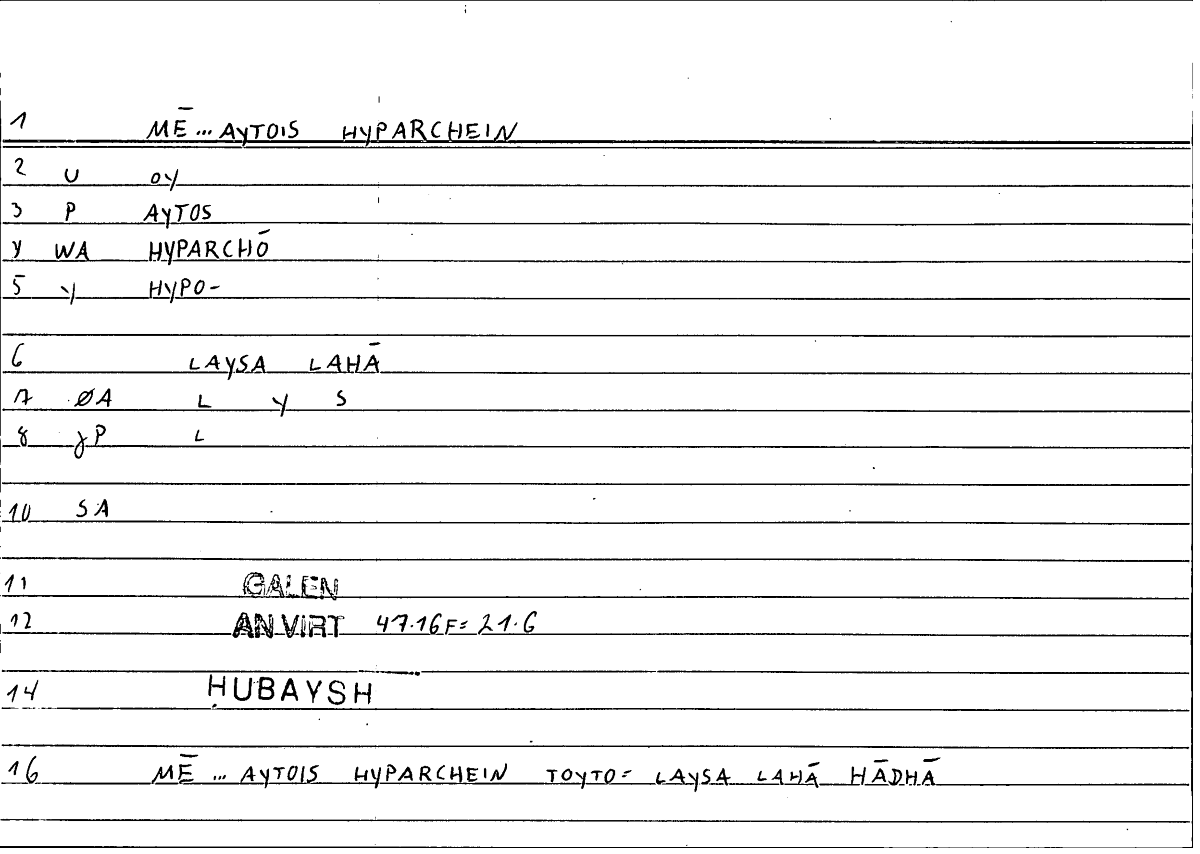 1 MĒ ... AYTOIS HYPARCHEIN
2 U OY
3 P AYTOS
4 WA HYPARCHŌ
5 Y HYPO-
6 LAYSA LAHĀ
7 ØA L Y S
8 γP L
10 SA
11 GALEN
12 AN VIRT 47.16F= 21.6
14 ḤUBAYSH
16 MĒ ... AYTOIS HYPARCHEIN TOYTO= LAYSA LAHĀ HĀDHĀ